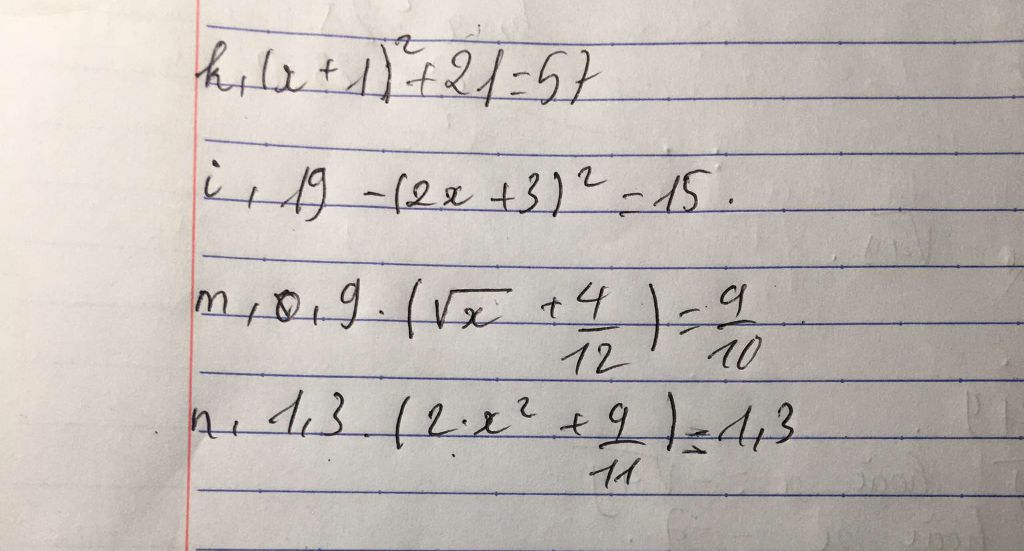 k, (x + 1)² + 21 = 57
i, 19 - (2x + 3)² = 15.
m, 0,9 . (√x + 4/12) = 9/10
n, 1,3 . (2.x² + 9/11) = 1,3